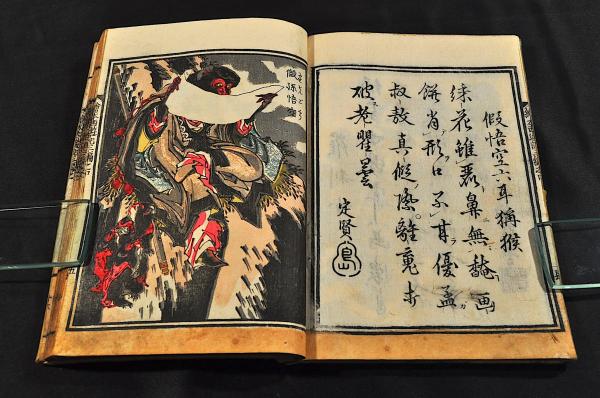 假悟空六耳獼猴
綵花雖麗鼻無馣画
餅肖形口不甘優孟
叔敖真假離竟未
破老瞿曇
定賢
島
假孫悟空